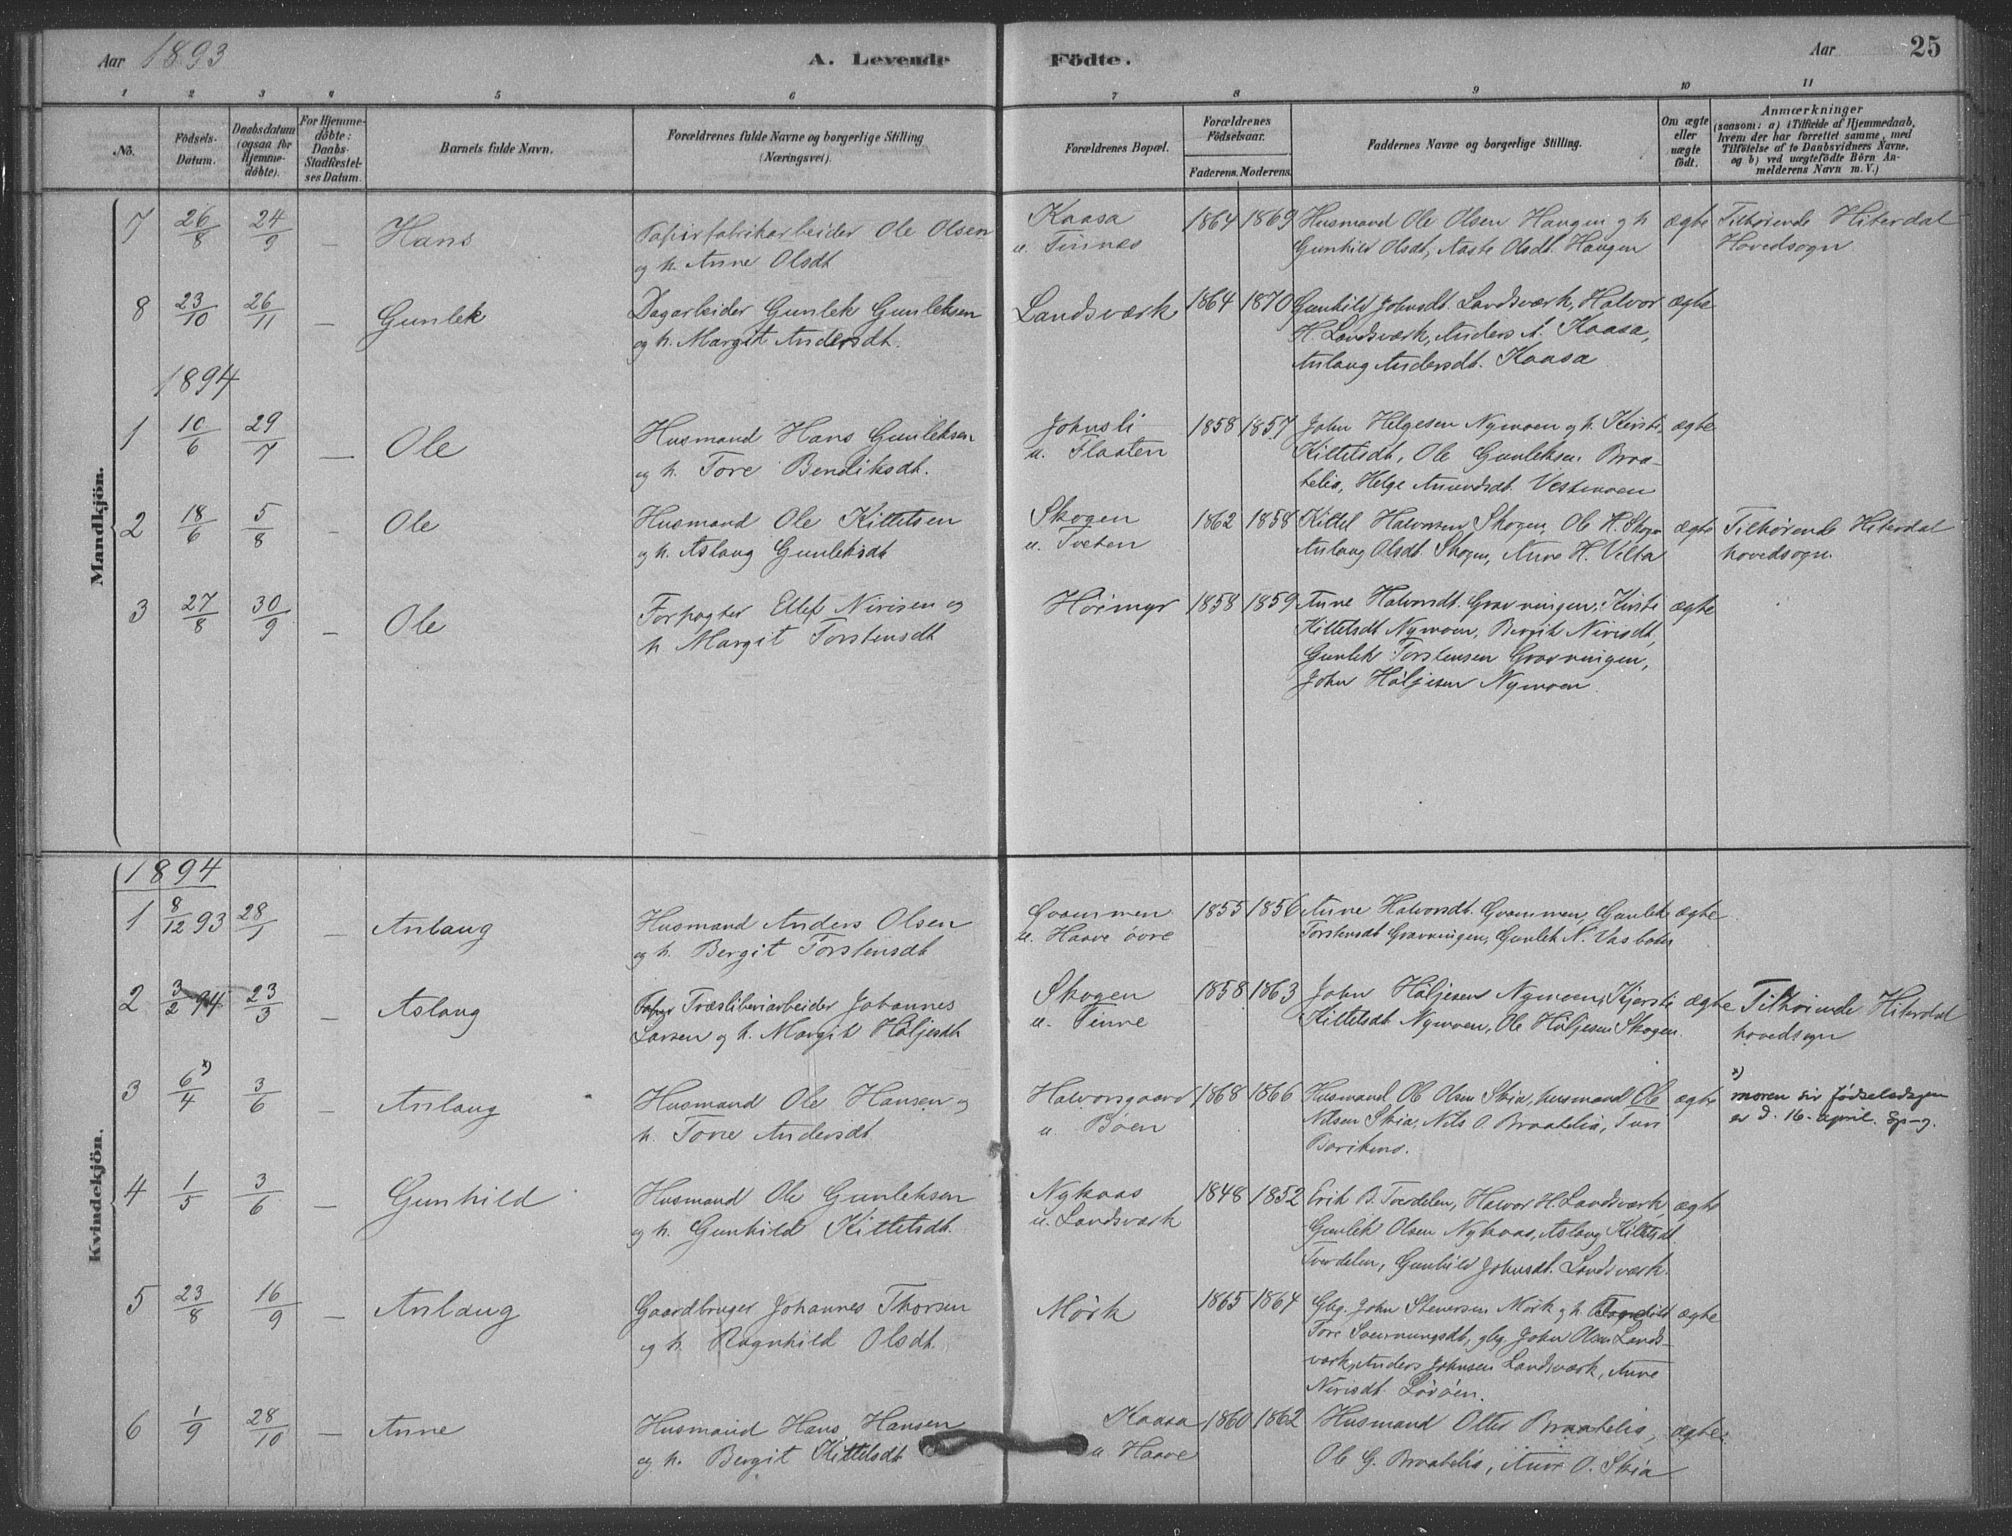 Aar 1893 A. Levende Födte. Aar 25
1 2 3 4 5 6 7 8 9 10 11
No. Födsels-Datum. Daabsdatum (ogsaa for Hjemmedöbte). For Hjemmedöbte: Daabs-Stadfæstelses Datum. Barnets fulde Navn. Forældrenes fulde Navne og borgerlige Stilling (Næringsvei). Forældrenes Bopæl. Forældrenes Födselsaar. Faderens. Moderens. Faddernes Navne og borgerlige Stilling. Om ægte eller uægte födt. Anmærkninger (saasom: a) i Tilfælde af Hjemmedaab, hvem der har forrettet samme, med Tilföielse af to Daabsvidners Navne, og b) ved uægtefödte Börn Anmelderens Navn m. V.)
Mandkjön.
7 26/8 24/9 — Hans Papirfabrikarbeider Ole Olsen Kaasa 1864 1869 Husmand Ole Olsen Haugen og h. ægte Tilhørende Hiterdal
og h. Anne Olsdt u. Tinnes Gunhild Olsdt, Aaste Olsdt. Haugen Hovedsogn
8 23/10 26/11 — Gunlek Dagarbeider Gunlek Gunleksen Landsværk 1864 1870 Gunhild Johnsdt. Landsværk, Halvor ægte
og h. Margit Andersdt. H. Landsværk, Anders A. Kaasa,
Aslaug Andersdt. Kaasa
1894
1 10/6 29/7 — Ole Husmand Hans Gunleksen Johnsli 1858 1857 John Helgesen Nymoen og h. Kirsti ægte
og h. Tore Bendiksdt. u. Flaaten Kittelsdt, Ole Gunleksen Braa-
telia, Helge Amundsdt. Vestmoen
2 18/6 5/8 — Ole Husmand Ole Kittelsen Skogen 1862 1858 Kittel Halvorsen Skogen, Ole H. Skogen ægte Tilhørende Hiterdal
og h. Aslaug Gunleksdt u. Tveten Anlaug Olsdt. Skogen, Anne H. Velta hovedsogn.
3 27/8 30/9 — Ole Forpagter Ellef Nirisen og Höimyr 1858 1859 Anne Halvorsdt. Gravningen, Kirsti ægte
h. Margit Torstensdt Kittelsdt Nymoen, Bergit Nirisdt,
Gunlek Torstensen Gravningen,
John Höljesen Nymoen.
Kvindekjön.
1894
1 8/12 93 28/1 — Anlaug Husmand Anders Olsen Grammen 1855 1856 Anne Halvorsdt. Grammen, Gunlek ægte
og h. Bergit Torstensdt u. Haave övre Torstensdt Gravningen, Gunlek N.
2 3/2 94 23/3 — Aslaug Træsliberiarbeider Johannes Skogen 1858 1863 John Höljesen Nymoen, Kjersti ægte Tilhørende Hiterdal
Larsen og h. Margit Höljesdt u. Tinne Kittelsdt Nymoen, Ole Höljesen Skogen. hovedsogn
3 6/4 x) 3/6 — Anlaug Husmand Ole Hansen og Halvorsgaard 1868 1866 Husmand Ole Olsen Skia, husmand Ole ægte x) moren sir fødselsdagen
h. Tone Andersdt u. Böen Nilsen Skia, Nils O. Braatelia, er d. 16. april.
4 1/5 3/6 — Gunhild Husmand Ole Gunleksen Nykaas 1848 1852 Erik B. Tverdelen, Halvor H. Landsværk, ægte
og h. Gunhild Kittelsdt. u. Landsværk Gunlek Olsen Nykaas, Aslaug Kittelsdt
Tverdelen, Gunhild Johnsdt. Landsværk.
5 23/8 16/9 — Anlaug Gaardbruger Johannes Thorsen Mörk 1865 1864 Gbg. John Stenersen Mörk og h. ægte
og h. Ragnhild Olsdt. Tore, gbg. John Olsen Lands-
værk, Anders Johnsen Landsværk, Anne
Nirisdt.
6 1/9 28/10 — Anne Husmand Hans Hansen Kaasa 1860 1862 Husmand Otter Braatelia, ægte
og h. Bergit Kittelsdt u. Haave Ole G. Braatelia, Anne O. Skia